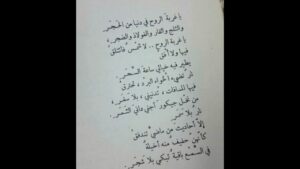 يا غربة الروح في دنيا من الحجر
والثلج والقار والفولاذ والضجر،
يا غربة الروح.. لا شمس فأئتلق
فيها ولا أفق
يطير فيه خيالي ساعة السحر.
نار تضيء الخواء البرد، تحترق
فيها المسافات، تدنيني، بلا سفر،
من نخل جيكور أجني داني الثمر.
نار بلا سمر
إلا أحاديث من ماضي تندفق
كأنهن حفيف منه أخيلة
في السمع باقية تبكي بلا شجر.